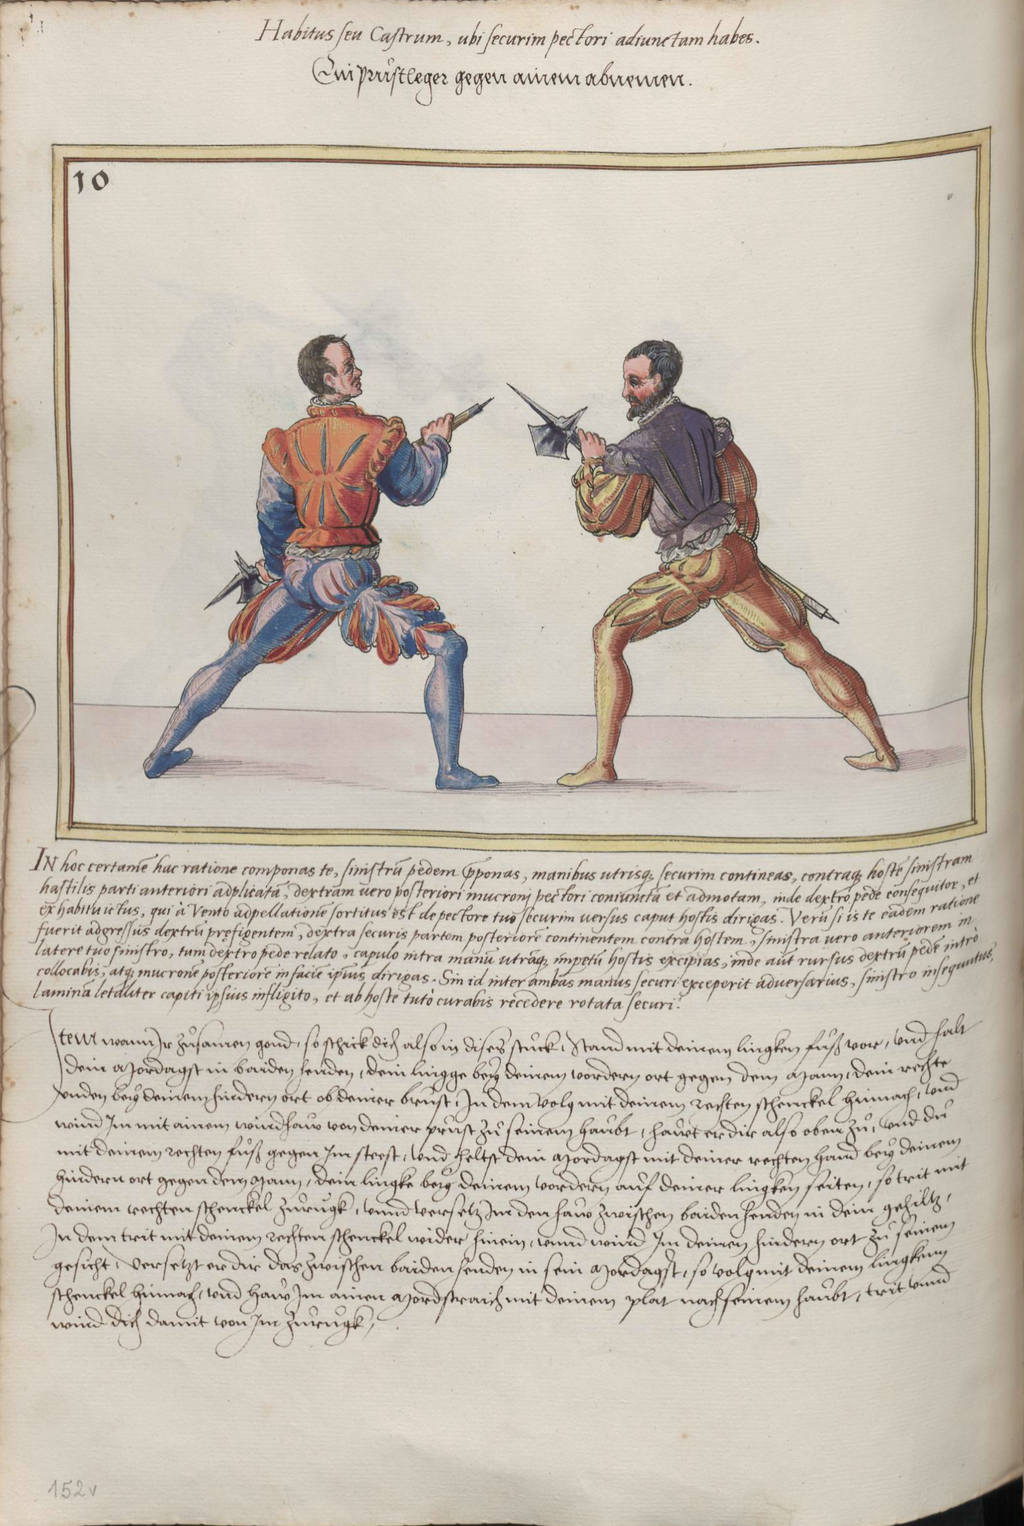 Habitus seu Castrum, ubi securim pectori adiunctam habes.
Ein prüstleger gegen ainem abnemen.
10
IN hoc certamē hac ratione componas te, sinistrū pedem ꝓponas, manibus utrisq; securim contineas, contraq; hostē sinistram
hastilis parti anteriori adplicatā, dextram uero posteriori mucroni pectori coniunctā et admotam, inde dextro pede consequitor, et
ex habitu ictus, qui à Vento adpellationē sortitus est de pectore tuo securim uersus caput hostis dirigas. Verū si is te eadem ratione
fuerit adgressus dextrū prefigentem, dextra securis partem posteriorē continentem contra hostem, sinistra uero anteriorem in
latere tuo sinistro, tum dextro pede relato, capulo intra manū utrāq; impetū hostis excipias, inde aut rursus dextrū pedē intro
collocabis, atq; mucrone posteriore in facie ipsius dirigas. Sin id inter ambas manus securi exceperit aduersarius, sinistro insequutus,
lamina letaliter capiti ipsius infligito, et ab hoste tuto curabis recedere rotata securi.
Item wann Jr zůsamen gond, so schick dich also in dises stuck, Stand mit deinem lingken fůß vor, vnd halt
dein Mordagst in baiden henden, dein lingge bey deinem vordern ort gegen dem Mann, dein rechte
vnden bey deinem hindern ort ob deiner brust, In dem volg mit deinem rechten schenckel hinnach, vnd
wind Im mit ainem windhaw von deiner prust zů seinem haubt, hawt er dir also oben zů, vnd du
mit deinem rechten fůß gegen Im steest, vnd heltst dein Mordagst mit deiner rechten hand bey deinem
hindern ort gegen dem Mann, dein lingke bey deinem vordern auf deiner lingken seiten, so trit mit
deinem rechten schenckel zůrugk, vnnd versetz Im den haw zwischen baiden henden in dein gehiltz,
In dem trit mit deinem rechten schenckel wider hinein, vnnd wind Im deinen hindern ort zů seinem
gesicht, versetzt er dir das zwischen baiden henden in sein Mordagst, so volg mit deinem lingkem
schenckel hinnach, vnd haw Im ainen Mordstraich mit deinem plat nach seinem haubt, trit vnnd
wind dich damit von Im zůrugk,
152v